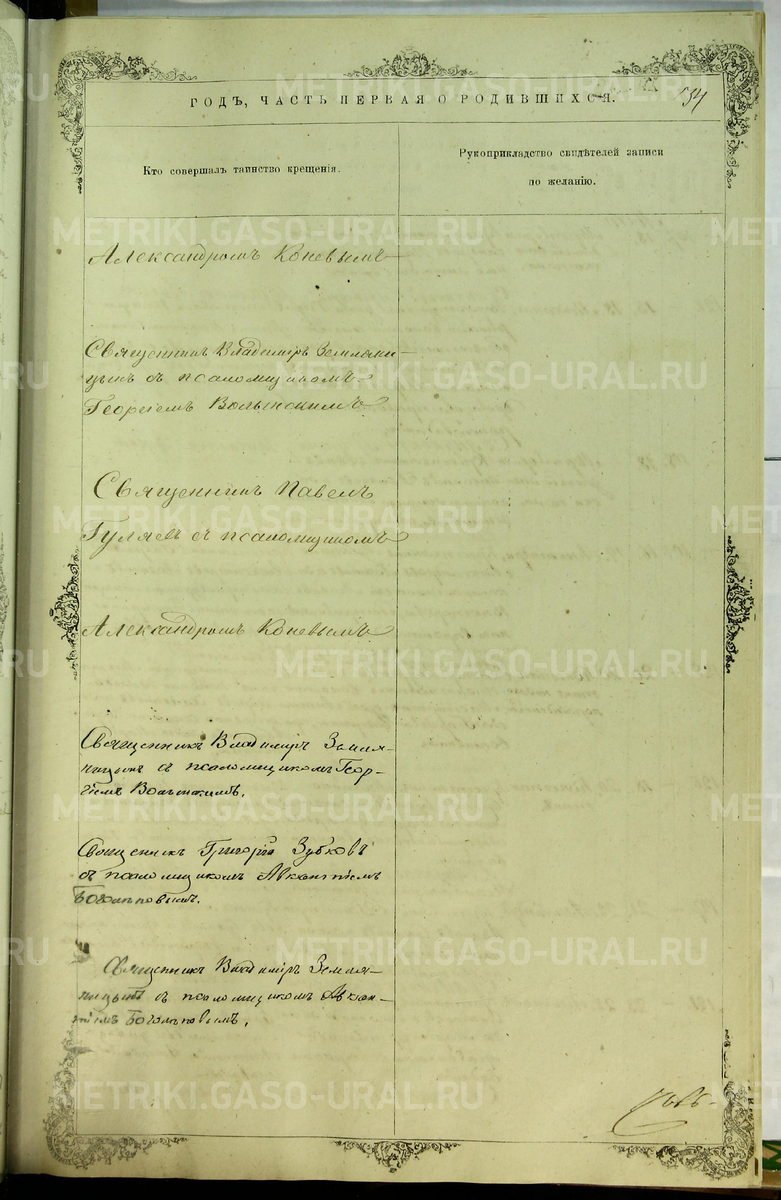 ГОДЪ, ЧАСТЬ ПЕРВАЯ О РОДИВШИХСЯ.
Кто совершалъ таинство крещенія.
Рукоприкладство свидѣтелей записи
по желанію.
Александромъ Коневымъ
Священникъ Владиміръ Земляни-
цынъ съ псаломщикомъ
Георгіемъ
Священникъ Павелъ
Гуляевъ съ псаломщикомъ
Александромъ Коневымъ
Священникъ Владиміръ Земля-
ницынъ съ псаломщикомъ Геор-
гіемъ
Священникъ Григорій Зубковъ
съ псаломщикомъ
Священникъ Владиміръ Земля-
ницынъ съ псаломщикомъ
METRIKI.GASO-URAL.RU